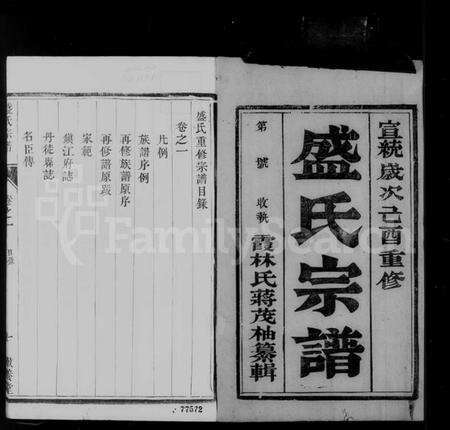 宣統歲次己酉重修
盛氏宗譜
第 號 收執
霞林氏蔣茂柚纂輯
盛氏重修宗譜目錄
卷之一
凡例
族譜序例
再修族譜原序
再修譜原跋
家範
鎮江府誌
丹徒縣誌
名臣傳
盛氏宗譜
卷之一
77572
FamilySearch